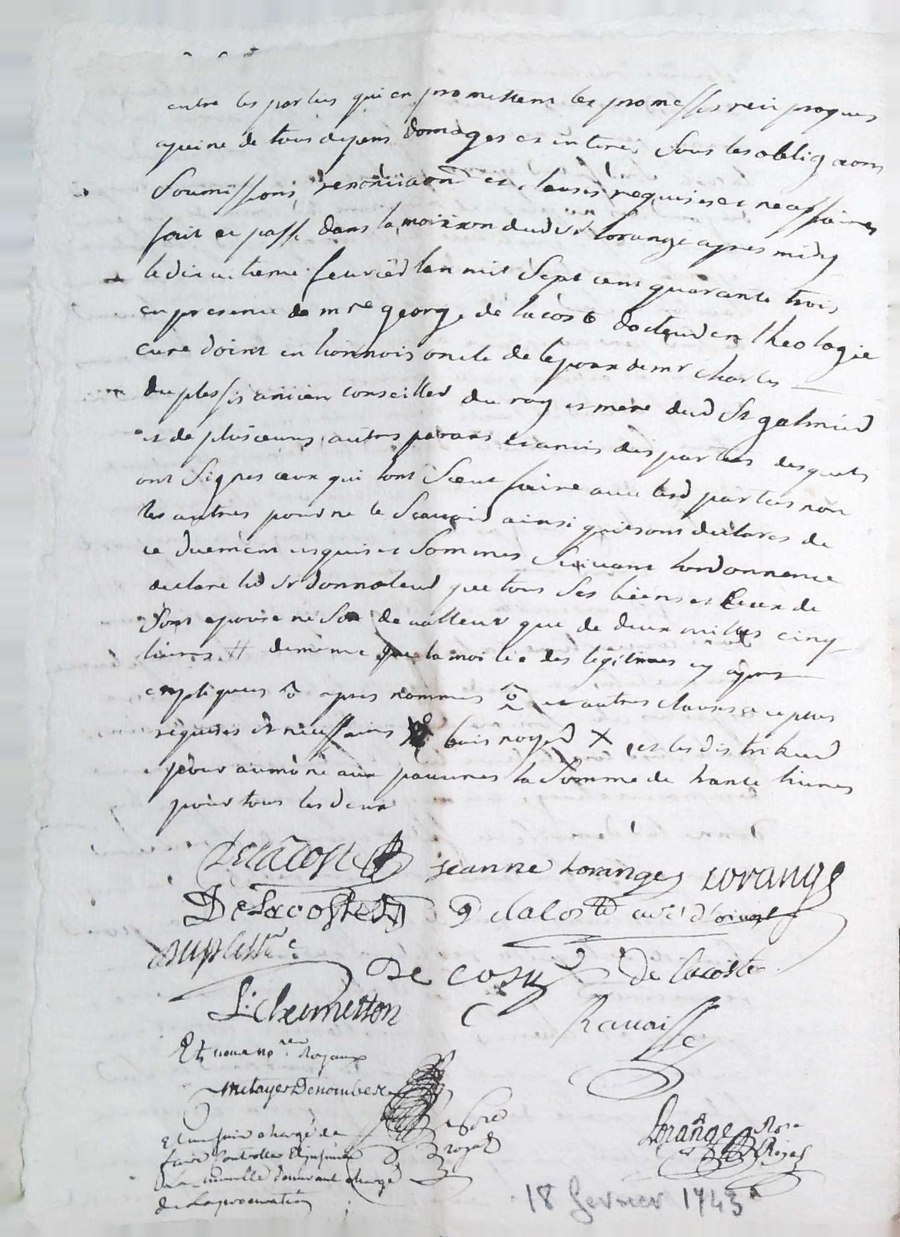 entre les parties qui en promettent les promesses reciproques
a peine de tous depens domages et interes sous les obligaons
soumissions, renonciaons et clauses requises et necessaires
fait et passé dans la maison dud sr lorange apres midy
le dix uitieme feurier lan mil sept cens quarante trois
en presence de mre george de lacoste docteur en theologie
cure doint en lionnois oncle de lepoux de mr charles
duplessis ancien conseiller du roy et mere dud St galmier
et de plusieurs autres parans et amis des parties desquels
ont signes ceux qui lont sceut faire auec lesd parties non
les autres pour ne le scauoir ainsi quils ont declares de
ce duement enquis et sommes suiuant lordonnence
declare led sr donnateur que tous ses biens et ceux de
son epouse ne son de valleur que de deux milles cinq
liures # dememe que la moitie des legitimes cy apres
expliquees o apres nommes o et autres clauses a ce plus
requises et necessaires bois noyer X et les distribuer
pour aumone aux pauures la somme de trante liures
pour tous les deux
Delacoste jeanne loranges lorange
DeLacoste G delacoste curé d'oint
duplessis
De Cosu de lacoste
L: Chermetton Rauaisse
Et nous nores Royaux
metayer Denombere
nore royal
Lorange nore Royal
Et luy fair chargé de
faire controller
en la minutte demeurant chargé
de la procuration
18 fevrier 1743